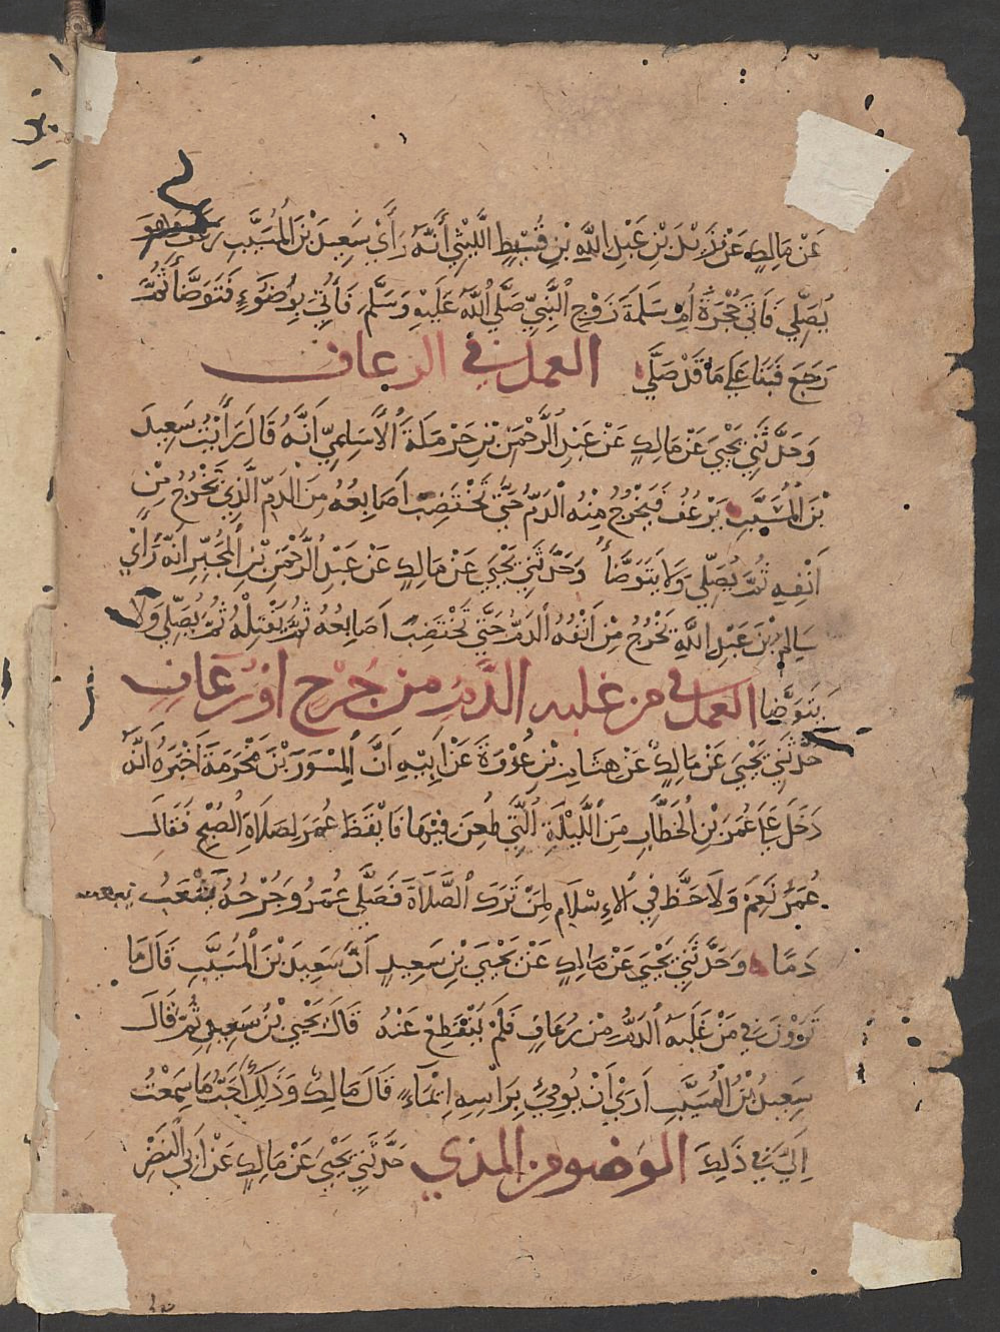 عَنْ مَالِكٍ عَنْ يَزِيدَ بْنِ عَبْدِ اللَّهِ بْنِ قُسَيْطٍ اللَّيْثِيِّ أَنَّهُ رَأَى سَعِيدَ بْنَ الْمُسَيَّبِ رَعَفَ وَهُوَ
يُصَلِّي فَأَتَى حُجْرَةَ أُمِّ سَلَمَةَ زَوْجِ النَّبِيِّ صَلَّى اللَّهُ عَلَيْهِ وَسَلَّمَ فَأُتِيَ بِوَضُوءٍ فَتَوَضَّأَ ثُمَّ
رَجَعَ فَبَنَا عَلَى مَا قَدْ صَلَّى العمل في الرعاف
وَحَدَّثَنِي يَحْيَى عَنْ مَالِكٍ عَنْ عَبْدِ الرَّحْمَنِ بْنِ حَرْمَلَةَ الْأَسْلَمِيِّ أَنَّهُ قَالَ رَأَيْتُ سَعِيدَ
بْنَ الْمُسَيَّبِ يَرْعُفُ فَيَخْرُجُ مِنْهُ الدَّمُ حَتَّى تَخْتَضِبَ أَصَابِعُهُ مِنَ الدَّمِ الَّذِي يَخْرُجُ مِنْ
أَنْفِهِ ثُمَّ يُصَلِّي وَلَا يَتَوَضَّأُ وَحَدَّثَنِي يَحْيَى عَنْ مَالِكٍ عَنْ عَبْدِ الرَّحْمَنِ بْنِ الْمُجَبَّرِ أَنَّهُ رَأَى
سَالِمَ بْنَ عَبْدِ اللَّهِ يَخْرُجُ مِنْ أَنْفِهِ الدَّمُ حَتَّى تَخْتَضِبَ أَصَابِعُهُ ثُمَّ يَفْتِلُهُ ثُمَّ يُصَلِّي وَلَا
يَتَوَضَّا العمل في من غلبه الدَّمُ من جُرْحٍ أَوْ رُعَافٍ
حَدَّثَنِي يَحْيَى عَنْ مَالِكٍ عَنْ هِشَامِ بْنِ عُرْوَةَ عَنْ أَبِيهِ أَنَّ الْمِسْوَرَ بْنَ مَخْرَمَةَ أَخْبَرَهُ أَنَّهُ
دَخَلَ عَلَى عُمَرَ بْنِ الْخَطَّابِ مِنَ اللَّيْلَةِ الَّتِي طُعِنَ فِيهَا فَأَيْقَظَ عُمَرَ لِصَلَاةِ الصُّبْحِ فَقَالَ
عُمَرُ نَعَمْ وَلَا حَظَّ فِي الْإِسْلَامِ لِمَنْ تَرَكَ الصَّلَاةَ فَصَلَّى عُمَرُ وَجُرْحُهُ يَثْعَبُ
دَمًا وَحَدَّثَنِي يَحْيَى عَنْ مَالِكٍ عَنْ يَحْيَى بْنِ سَعِيدٍ أَنَّ سَعِيدَ بْنَ الْمُسَيَّبِ قَالَ مَا
تَرَوْنَ فِي مَنْ غَلَبَهُ الدَّمُ مِنْ رُعَافٍ فَلَمْ يَنْقَطِعْ عَنْهُ قَالَ يَحْيَى بْنُ سَعِيدٍ ثُمَّ قَالَ
سَعِيدُ بْنُ الْمُسَيَّبِ أَرَى أَنْ يُومِئَ بِرَأْسِهِ إِيمَاءً قَالَ مَالِكٌ وَذَلِكَ أَحَبُّ مَا سَمِعْتُ
إِلَيَّ فِي ذَلِكَ الوضو من المذي حَدَّثَنِي يَحْيَى عَنْ مَالِكٍ عَنْ أَبِي النَّضْرِ